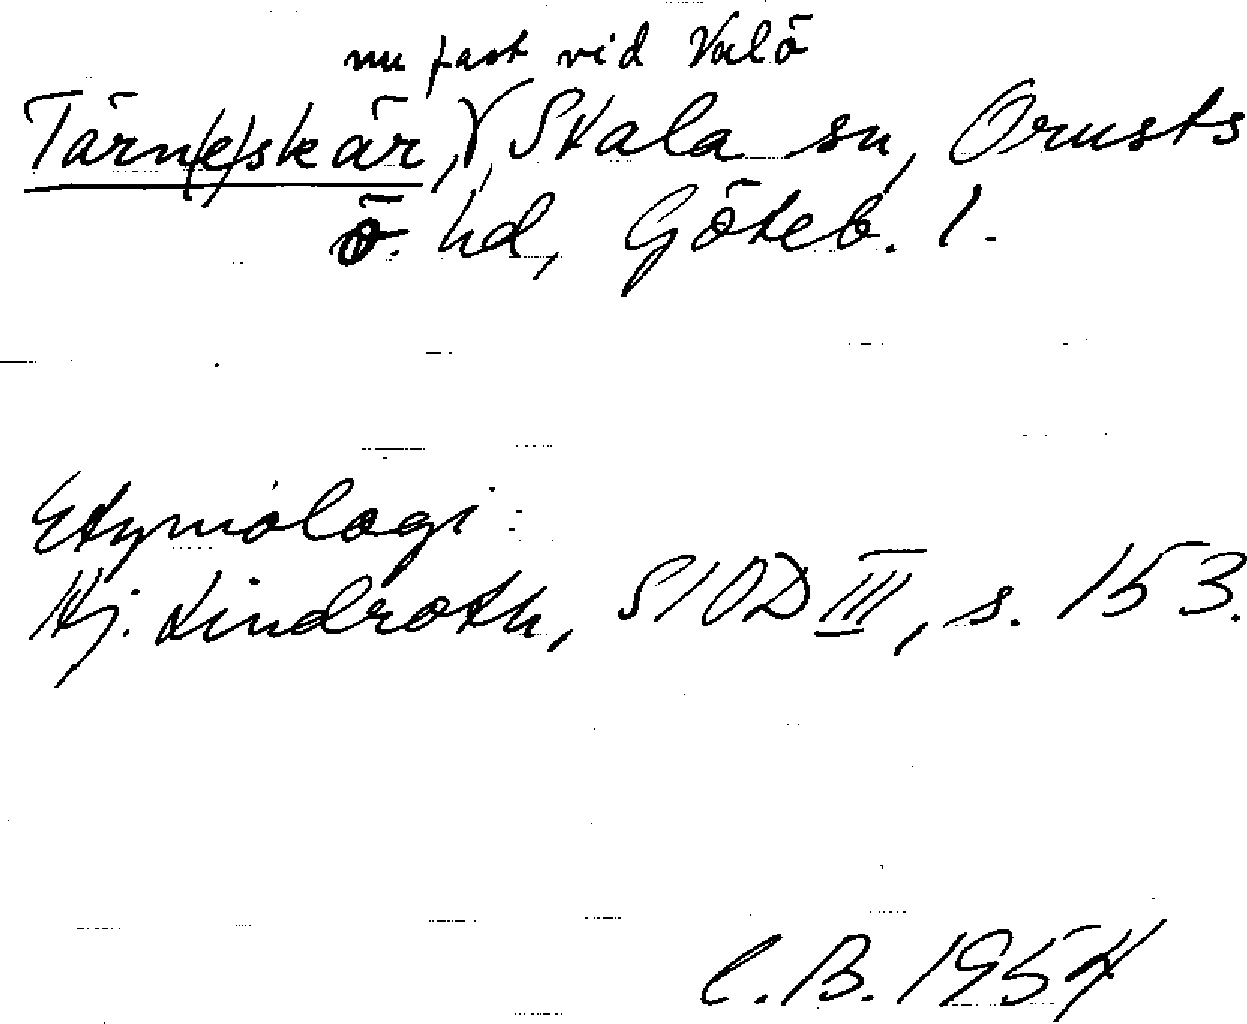 nu fast vid Valö
Tärn(e)skär, Skala sn, Orusts
ö. hd, Göteb. l.
Etymologi:
Hj. Lindroth, SIOD III, s. 153.
C.B. 1954